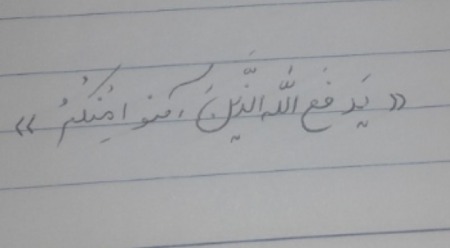 « يَرفَعِ اللَّه الَّذِينَ آمنوا مِنكُمُ »